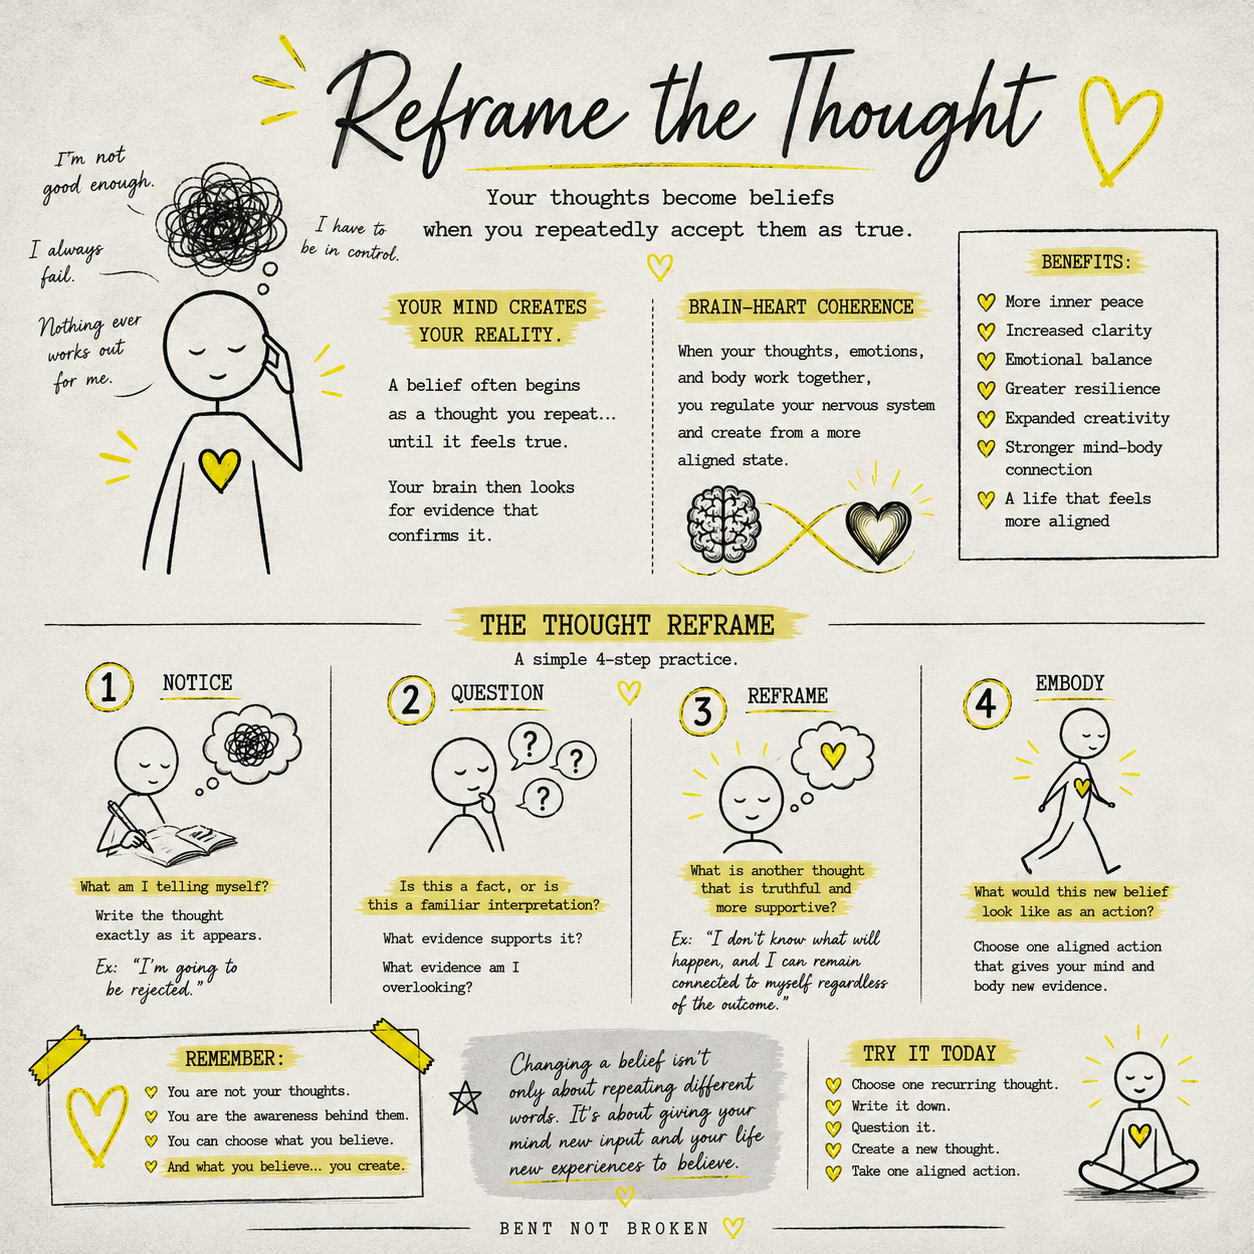 Reframe the Thought
Your thoughts become beliefs
when you repeatedly accept them as true.
I'm not
good enough.
I always
fail.
Nothing ever
works out
for me.
I have to
be in control.
YOUR MIND CREATES
YOUR REALITY.
A belief often begins
as a thought you repeat...
until it feels true.
Your brain then looks
for evidence that
confirms it.
BRAIN-HEART COHERENCE
When your thoughts, emotions,
and body work together,
you regulate your nervous system
and create from a more
aligned state.
BENEFITS:
More inner peace
Increased clarity
Emotional balance
Greater resilience
Expanded creativity
Stronger mind-body
connection
A life that feels
more aligned
THE THOUGHT REFRAME
A simple 4-step practice.
1 NOTICE
What am I telling myself?
Write the thought
exactly as it appears.
Ex: "I'm going to
be rejected."
2 QUESTION
? ? ?
Is this a fact, or is
this a familiar interpretation?
What evidence supports it?
What evidence am I
overlooking?
3 REFRAME
What is another thought
that is truthful and
more supportive?
Ex: "I don't know what will
happen, and I can remain
connected to myself regardless
of the outcome."
4 EMBODY
What would this new belief
look like as an action?
Choose one aligned action
that gives your mind and
body new evidence.
REMEMBER:
You are not your thoughts.
You are the awareness behind them.
You can choose what you believe.
And what you believe... you create.
Changing a belief isn't
only about repeating different
words. It's about giving your
mind new input and your life
new experiences to believe.
TRY IT TODAY
Choose one recurring thought.
Write it down.
Question it.
Create a new thought.
Take one aligned action.
BENT NOT BROKEN